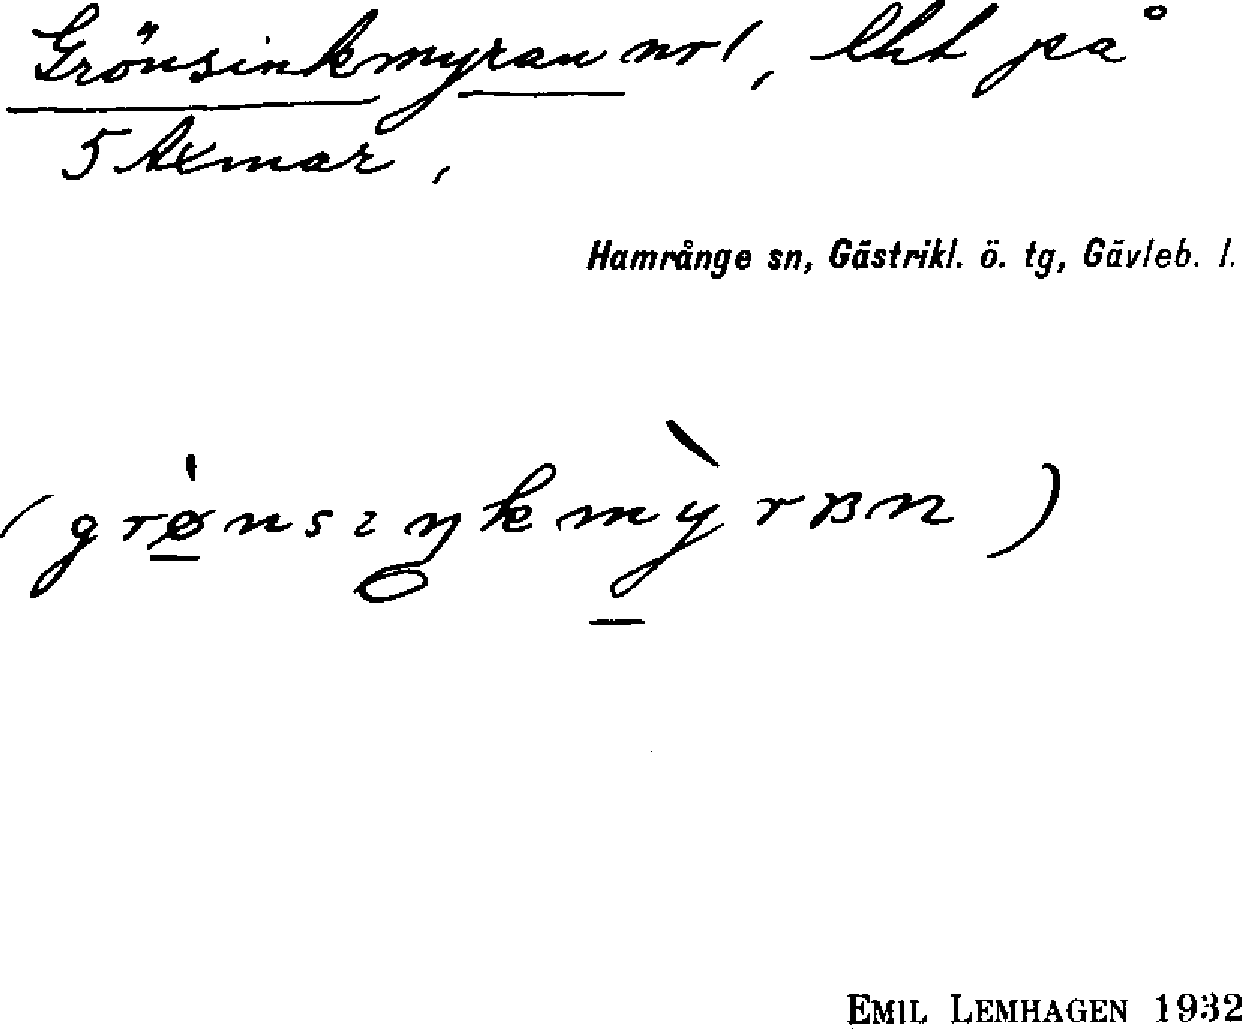 Grönsinkmyran nr 1, lht på
5 Axmar,
Hamrånge sn, Gästrikl. ö. tg, Gävleb. l.
(grø̲̀nsıŋkmỳ̲rʙn)
EMIL LEMHAGEN 1932